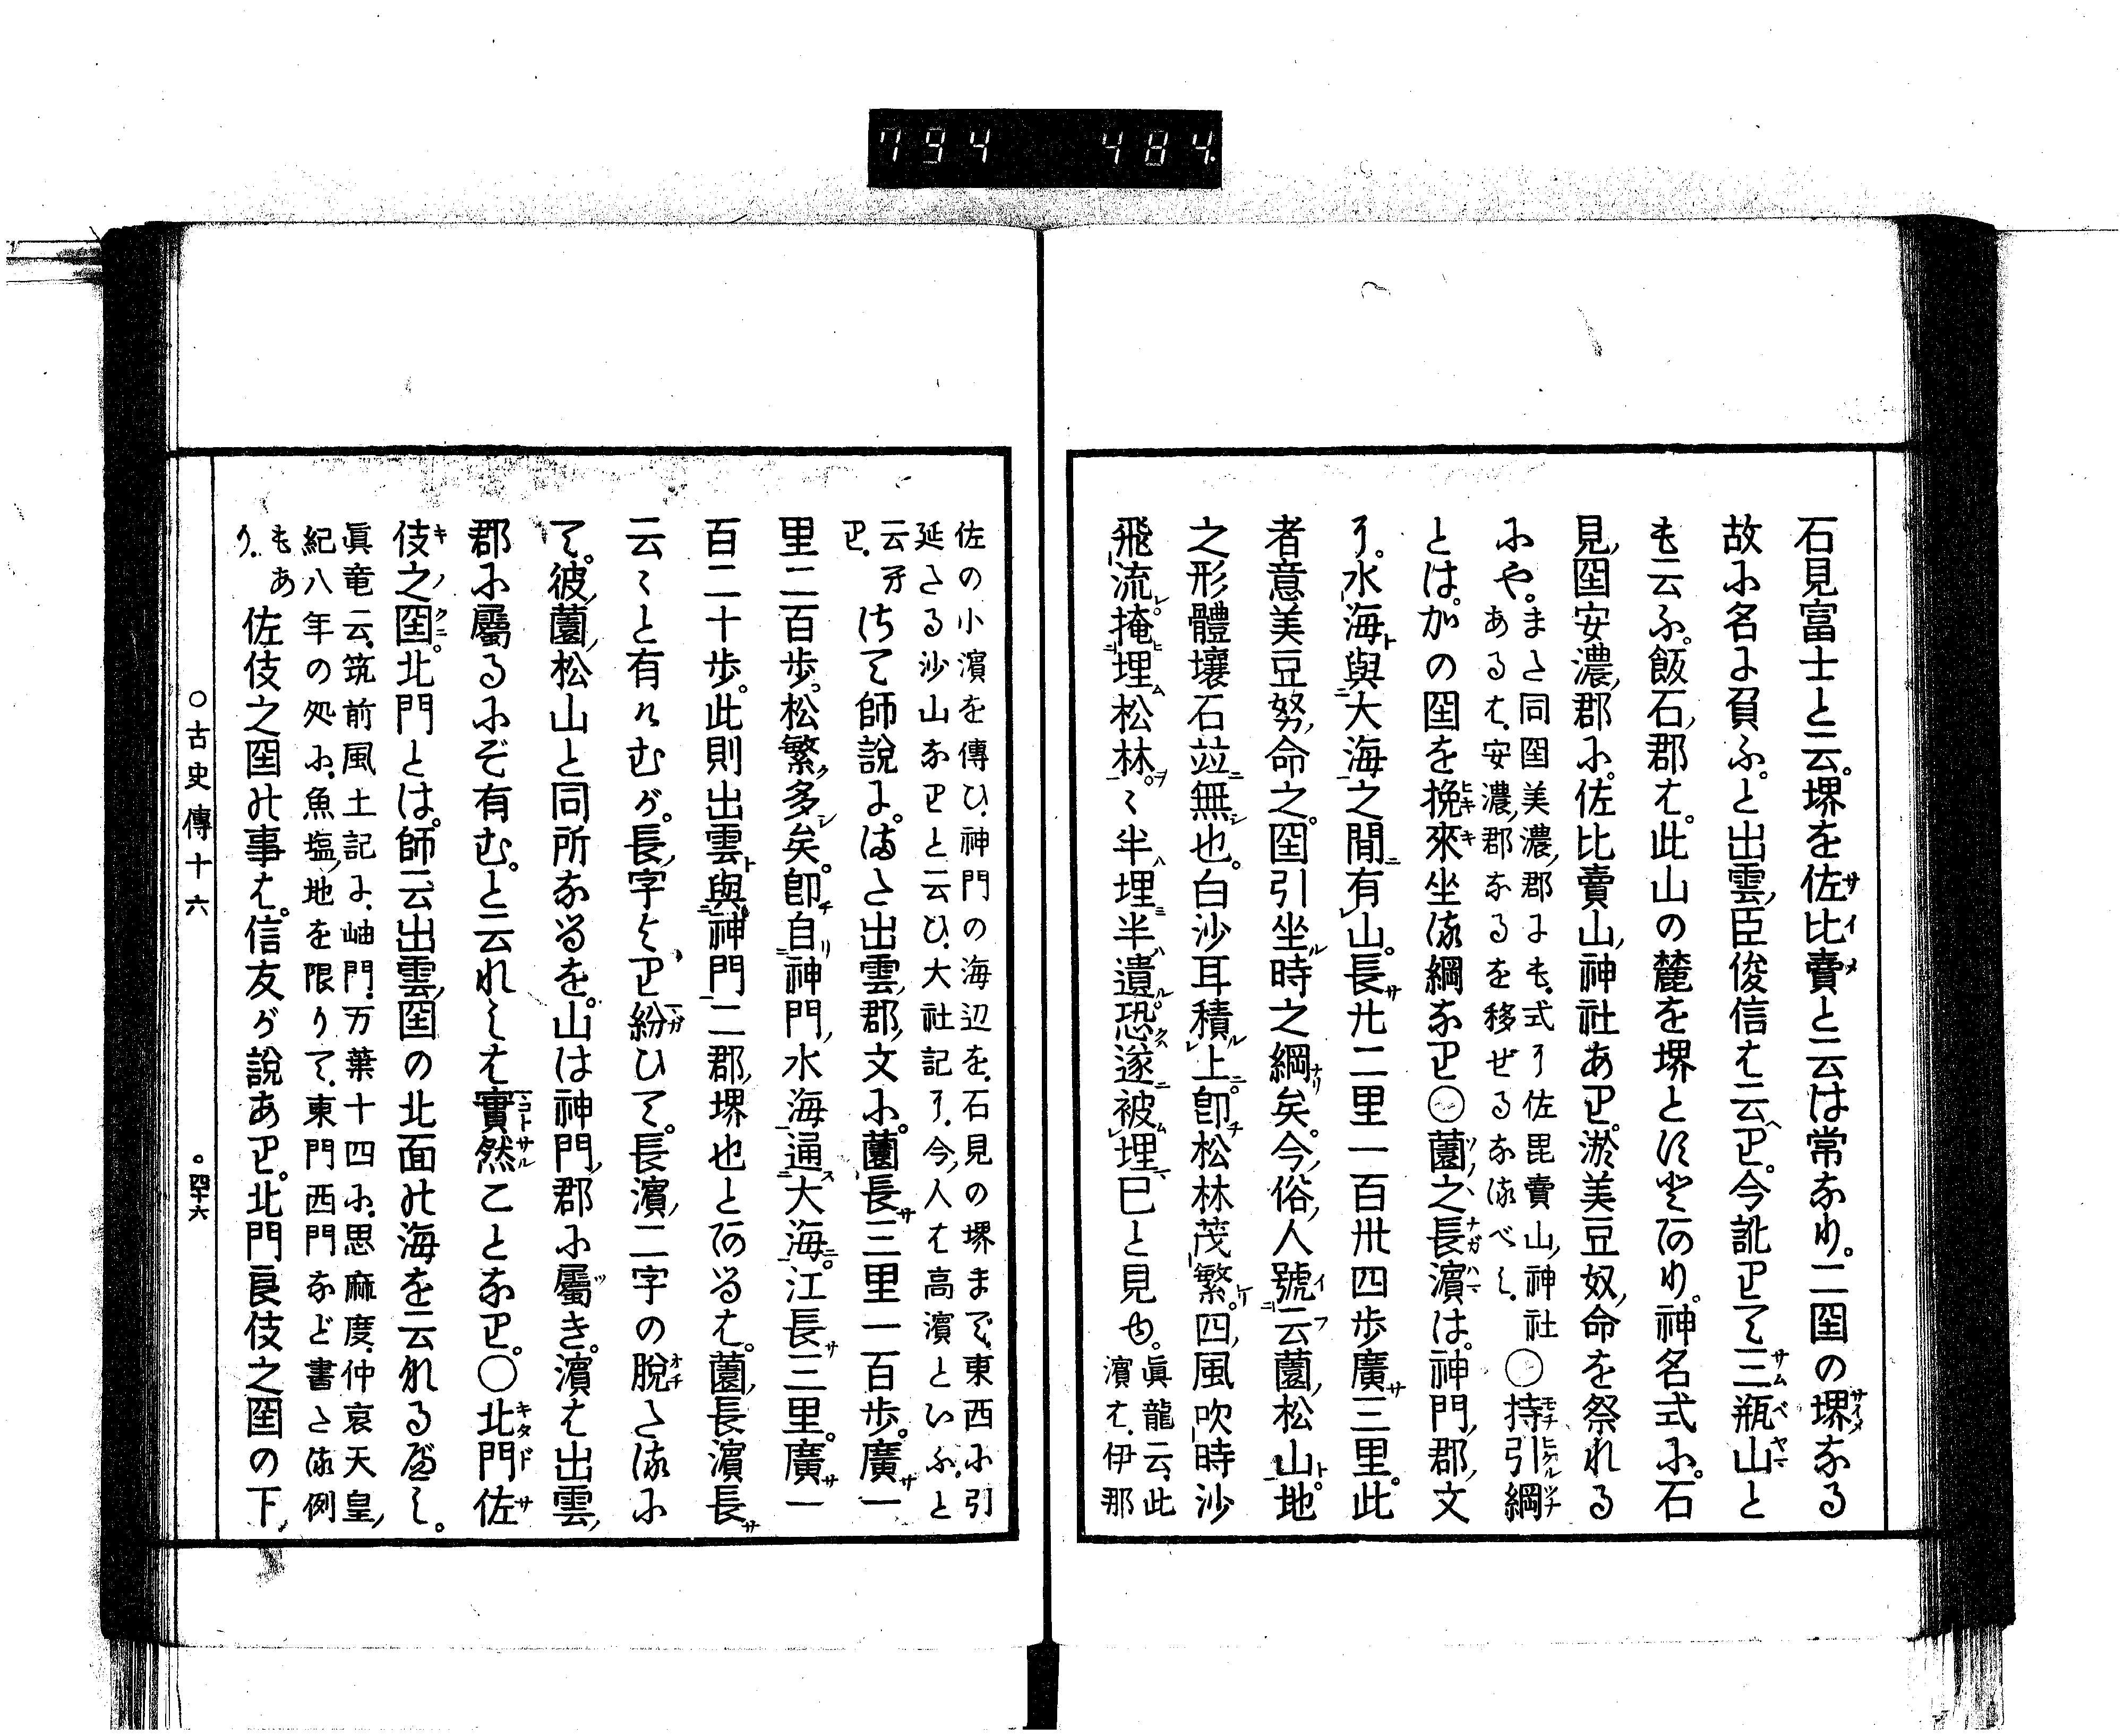 794 484.
石見富士と云。堺を佐比賣と云は常なり。二囶の堺なる
故に名に負ふ。と出雲臣俊信は云へり。今訛りて三瓶山と
も云ふ。飯石郡は。此山の麓を堺としてあり。神名式に。石
見囶安濃郡に。佐比賣山神社あり。淤美豆奴命を祭れる
にや。
また同囶美濃郡にも、式に佐毘賣山神社
あるは、安濃郡なるを移せるなるべし。
○持引綱
とは。かの囶を挽來坐る綱なり○薗之長濱は。神門郡文
に。水海與大海之間有山。長廿二里一百卅四歩廣三里。此
者意美豆努命之。囶引坐時之綱矣。今俗人號云薗松山地
之形體壤石竝無也。白沙耳積上。卽松林茂繁。四風吹時沙
飛流掩埋松林。〻半埋半遺。恐遂被埋已と見ゆ。
眞龍云、此
濱は、伊那
佐の小濱を傳ひ、神門の海辺を、石見の堺まで、東西に引
延たる沙山なりと云ひ、大社記に、今人は高濱といふ、と
云へ
り。
さて師說に。また出雲郡文に。薗長三里一百歩。廣一
里二百歩。松繁多矣。卽自神門水海通大海。江長三里。廣一
百二十歩。此則出雲與神門二郡堺也とあるは。薗長濱長
云〻と有けむが。長字より紛ひて。長濱二字の脫たるに
て。彼薗松山と同所なるを。山は神門郡に屬き。濱は出雲
郡に屬るにぞ有む。と云れしは實然ことなり。○北門佐
伎之囶。北門とは。師云出雲囶の北面の海を云れるなるべし。
眞竜云、筑前風土記に、岫門、万葉十四に、思麻度、仲哀天皇
紀八年の処に、魚塩地を限りて、東門西門など書たる例
もあ
り。
佐伎之囶の事は。信友が說あり。北門良伎之囶の下
○古史傳十六
○四十六